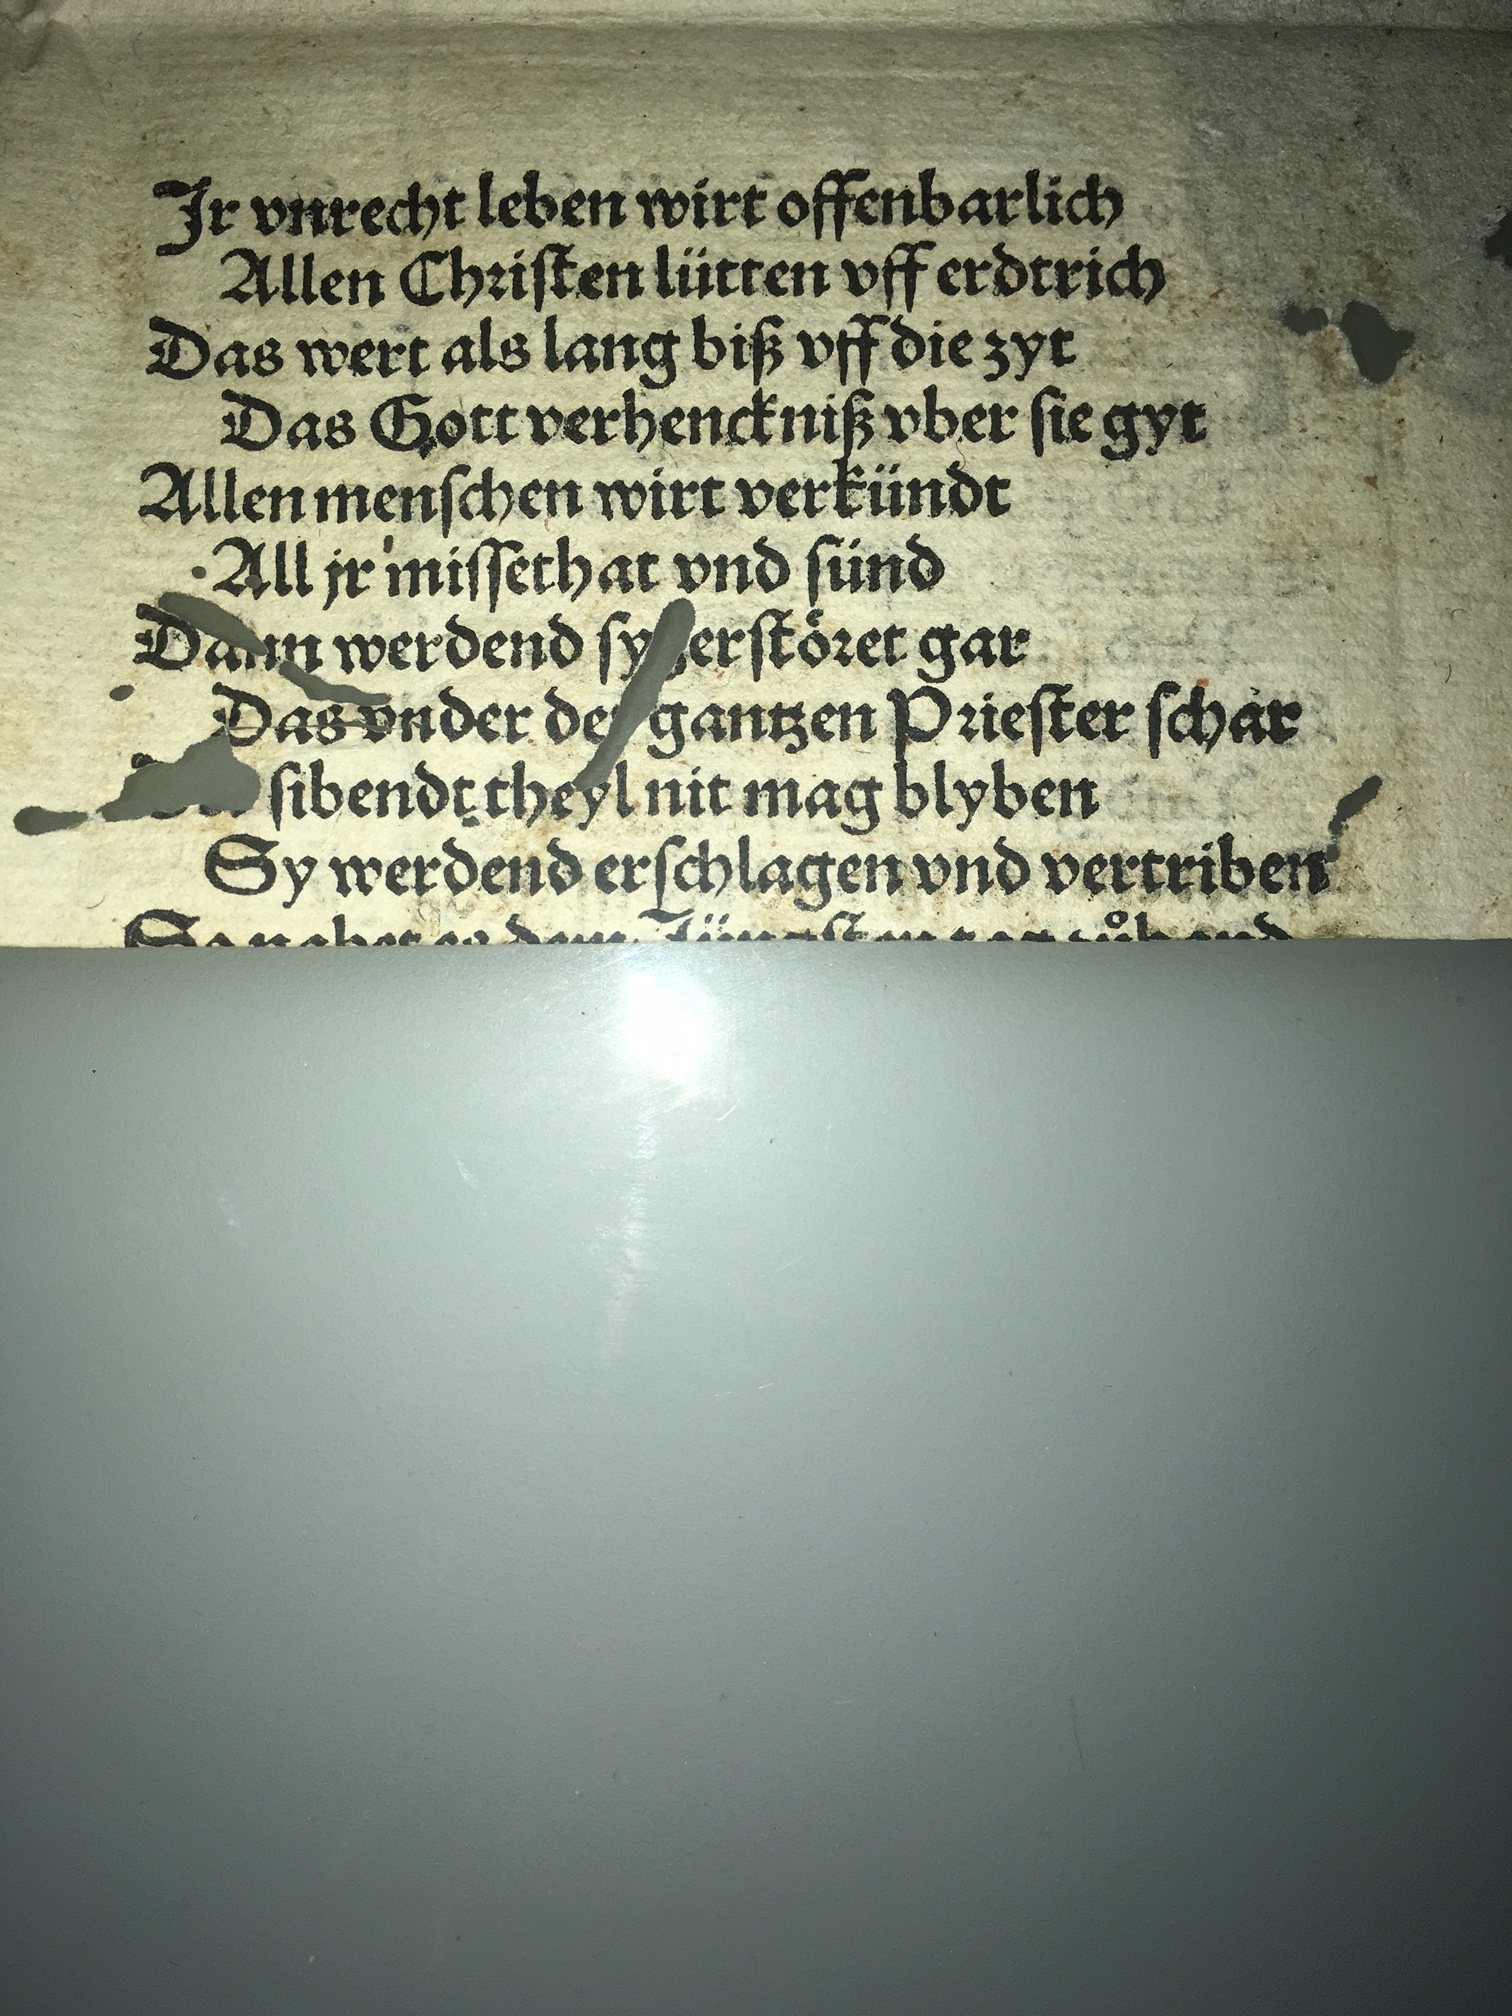 Jr vnrecht leben wirt offenbarlich
Allen Christen lütten vff erdtrich
Das wert als lang biß vff die zyt
Das Gott verhenckniß vber sie gyt
Allen menschen wirt verkündt
All jr missethat vnd sünd
Dann werdend sy zerstöret gar
Das vnder der gantzen Priester schar
sibendt theyl nit mag blyben
Sy werdend erschlagen vnd vertriben